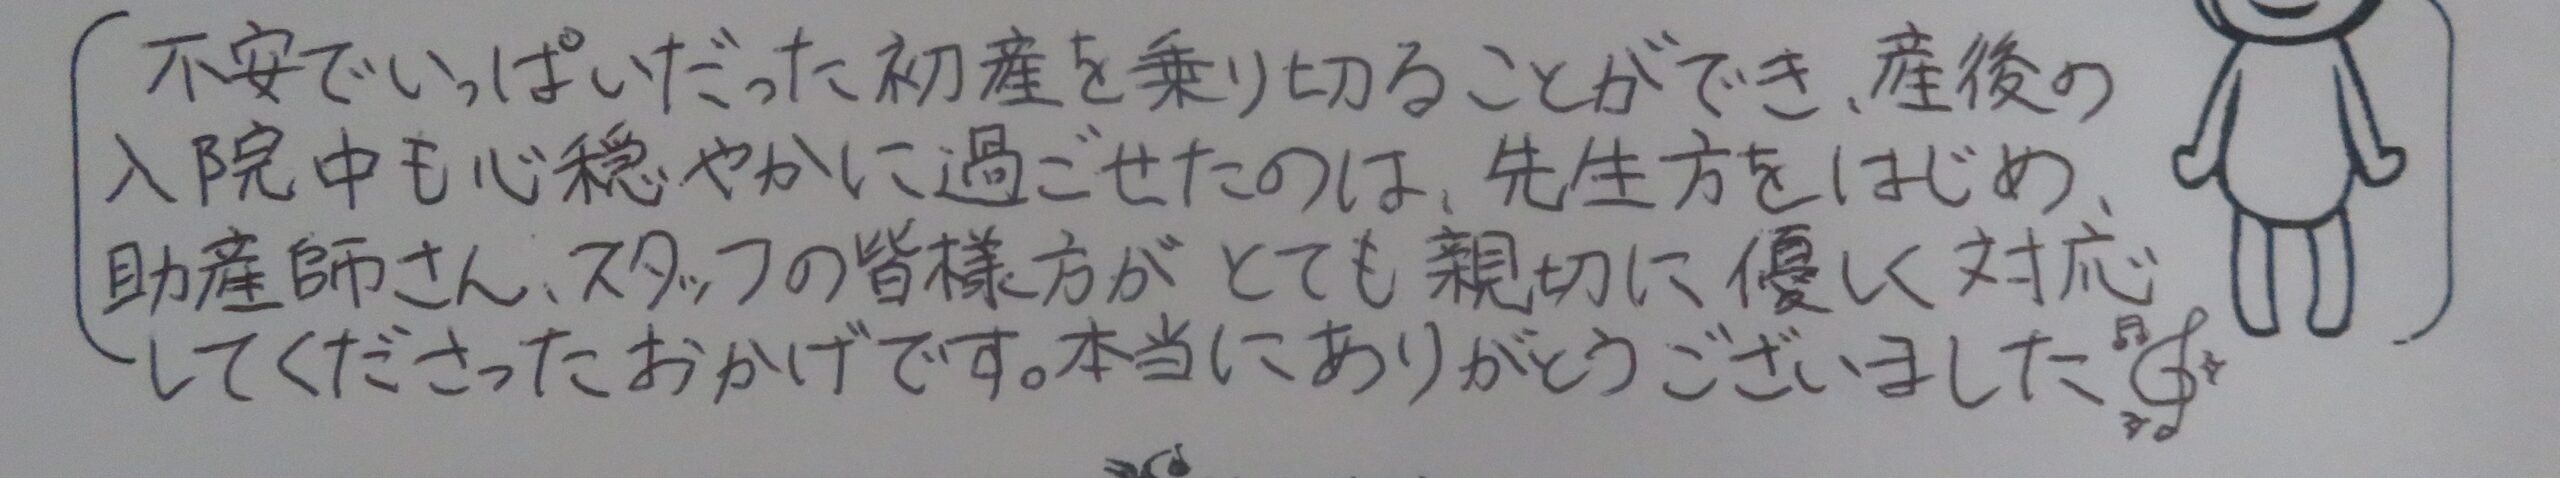 不安でいっぱいだった初産を乗り切ることができ、産後の
入院中も心穏やかに過ごせたのは、先生方をはじめ、
助産師さん、スタッフの皆様方がとても親切に優しく対応
してくださったおかげです。本当にありがとうございました